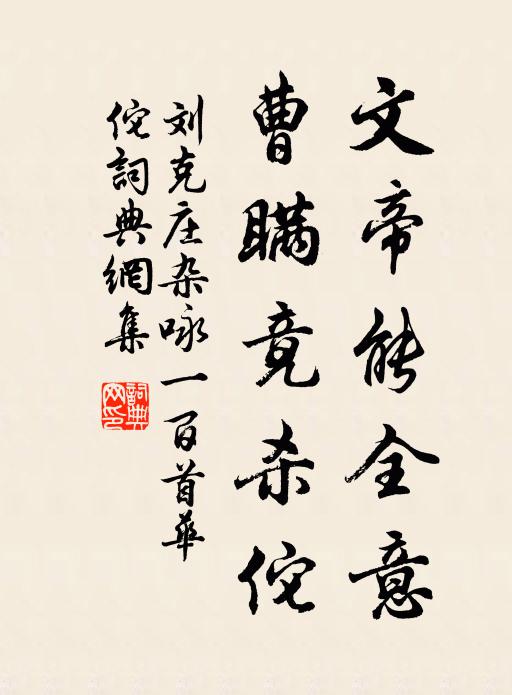 文帝能全意
曹瞒竟杀佗
刘克庄杂咏一百首华
佗詞典網集
詞典
网印